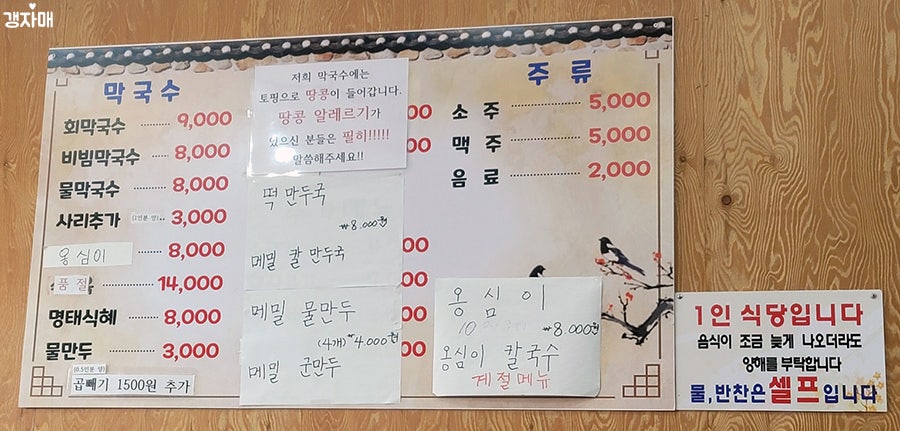 갱자매
막국수
회막국수 ········ 9,000
비빔막국수 ···· 8,000
물막국수 ········ 8,000
사리추가 (1인분 양).. 3,000
옹심이 ········ 8,000
품절 ········ 14,000
명태식혜 ········ 8,000
물만두 ········ 3,000
(0.5인분 양)
곱빼기 1500원 추가
저희 막국수에는
토핑으로 땅콩이 들어갑니다.
땅콩 알레르기가
있으신 분들은 필히!!!!!
말씀해주세요!!
떡 만두국
₩8.000원
메밀 칼 만두국
메밀 물만두
(4개) ₩4.000원
메밀 군만두
주류
소주 ········ 5,000
맥주 ········ 5,000
음료 ········ 2,000
옹심이
₩8.000원
옹심이 칼국수
계절메뉴
1인 식당입니다
음식이 조금 늦게 나오더라도
양해를 부탁합니다
물,반찬은 셀프입니다